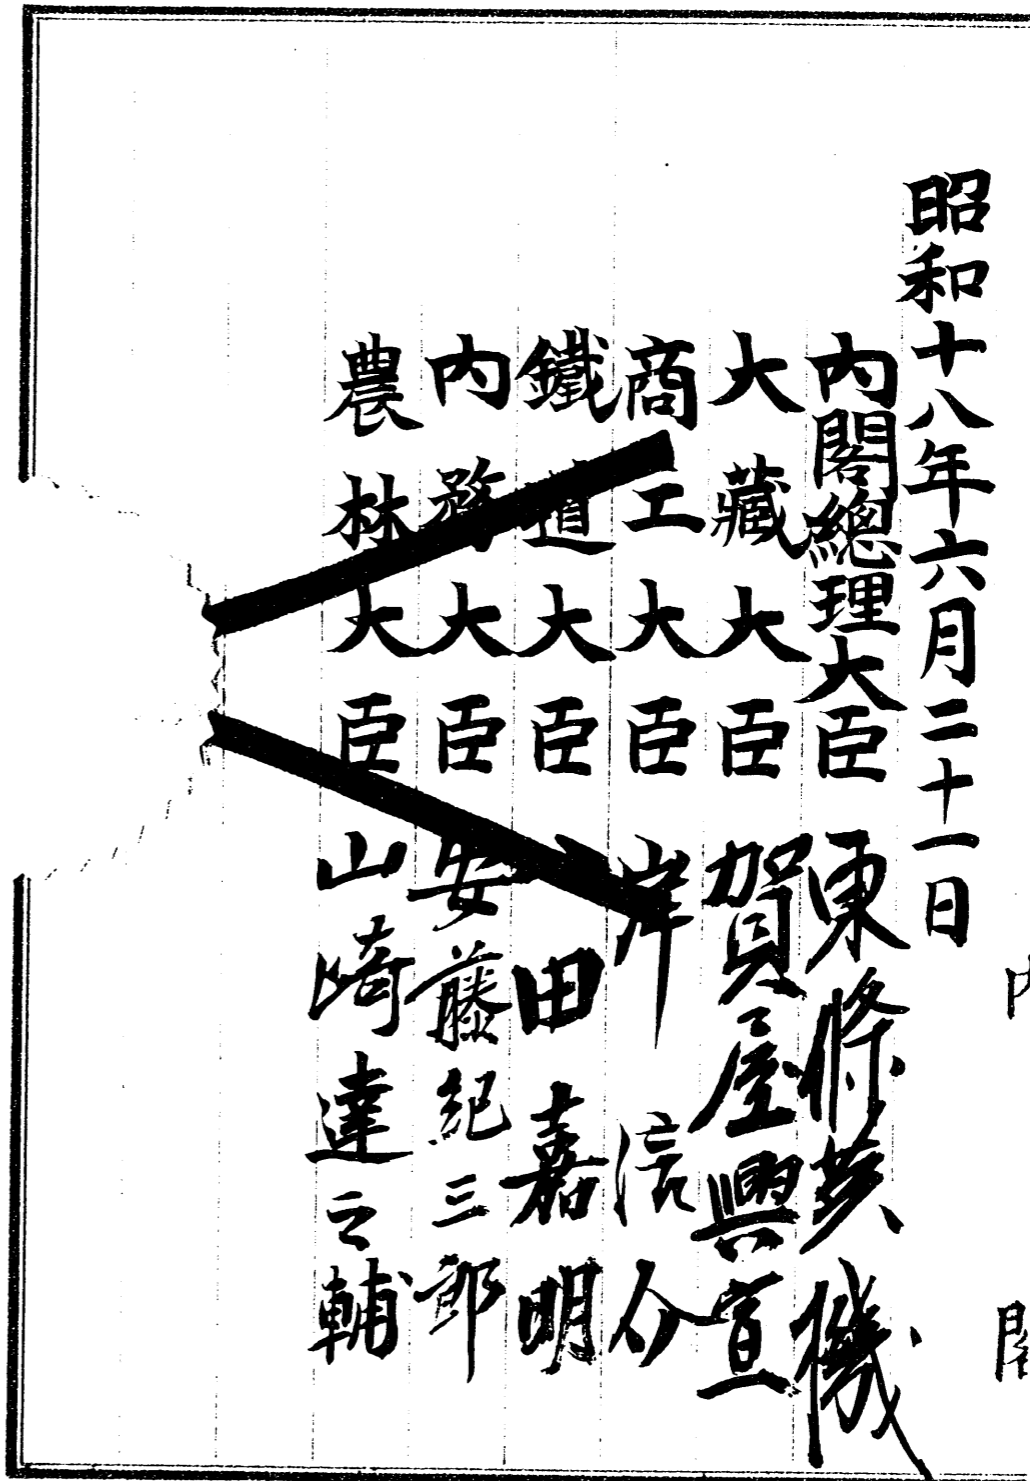 昭和十八年六月二十一日
內閣總理大臣 東條英機
大藏大臣 賀屋興宣
商工大臣 岸信介
鐵道大臣 田嘉明
內務大臣 安藤紀三郎
農林大臣 山崎達之輔
內閣